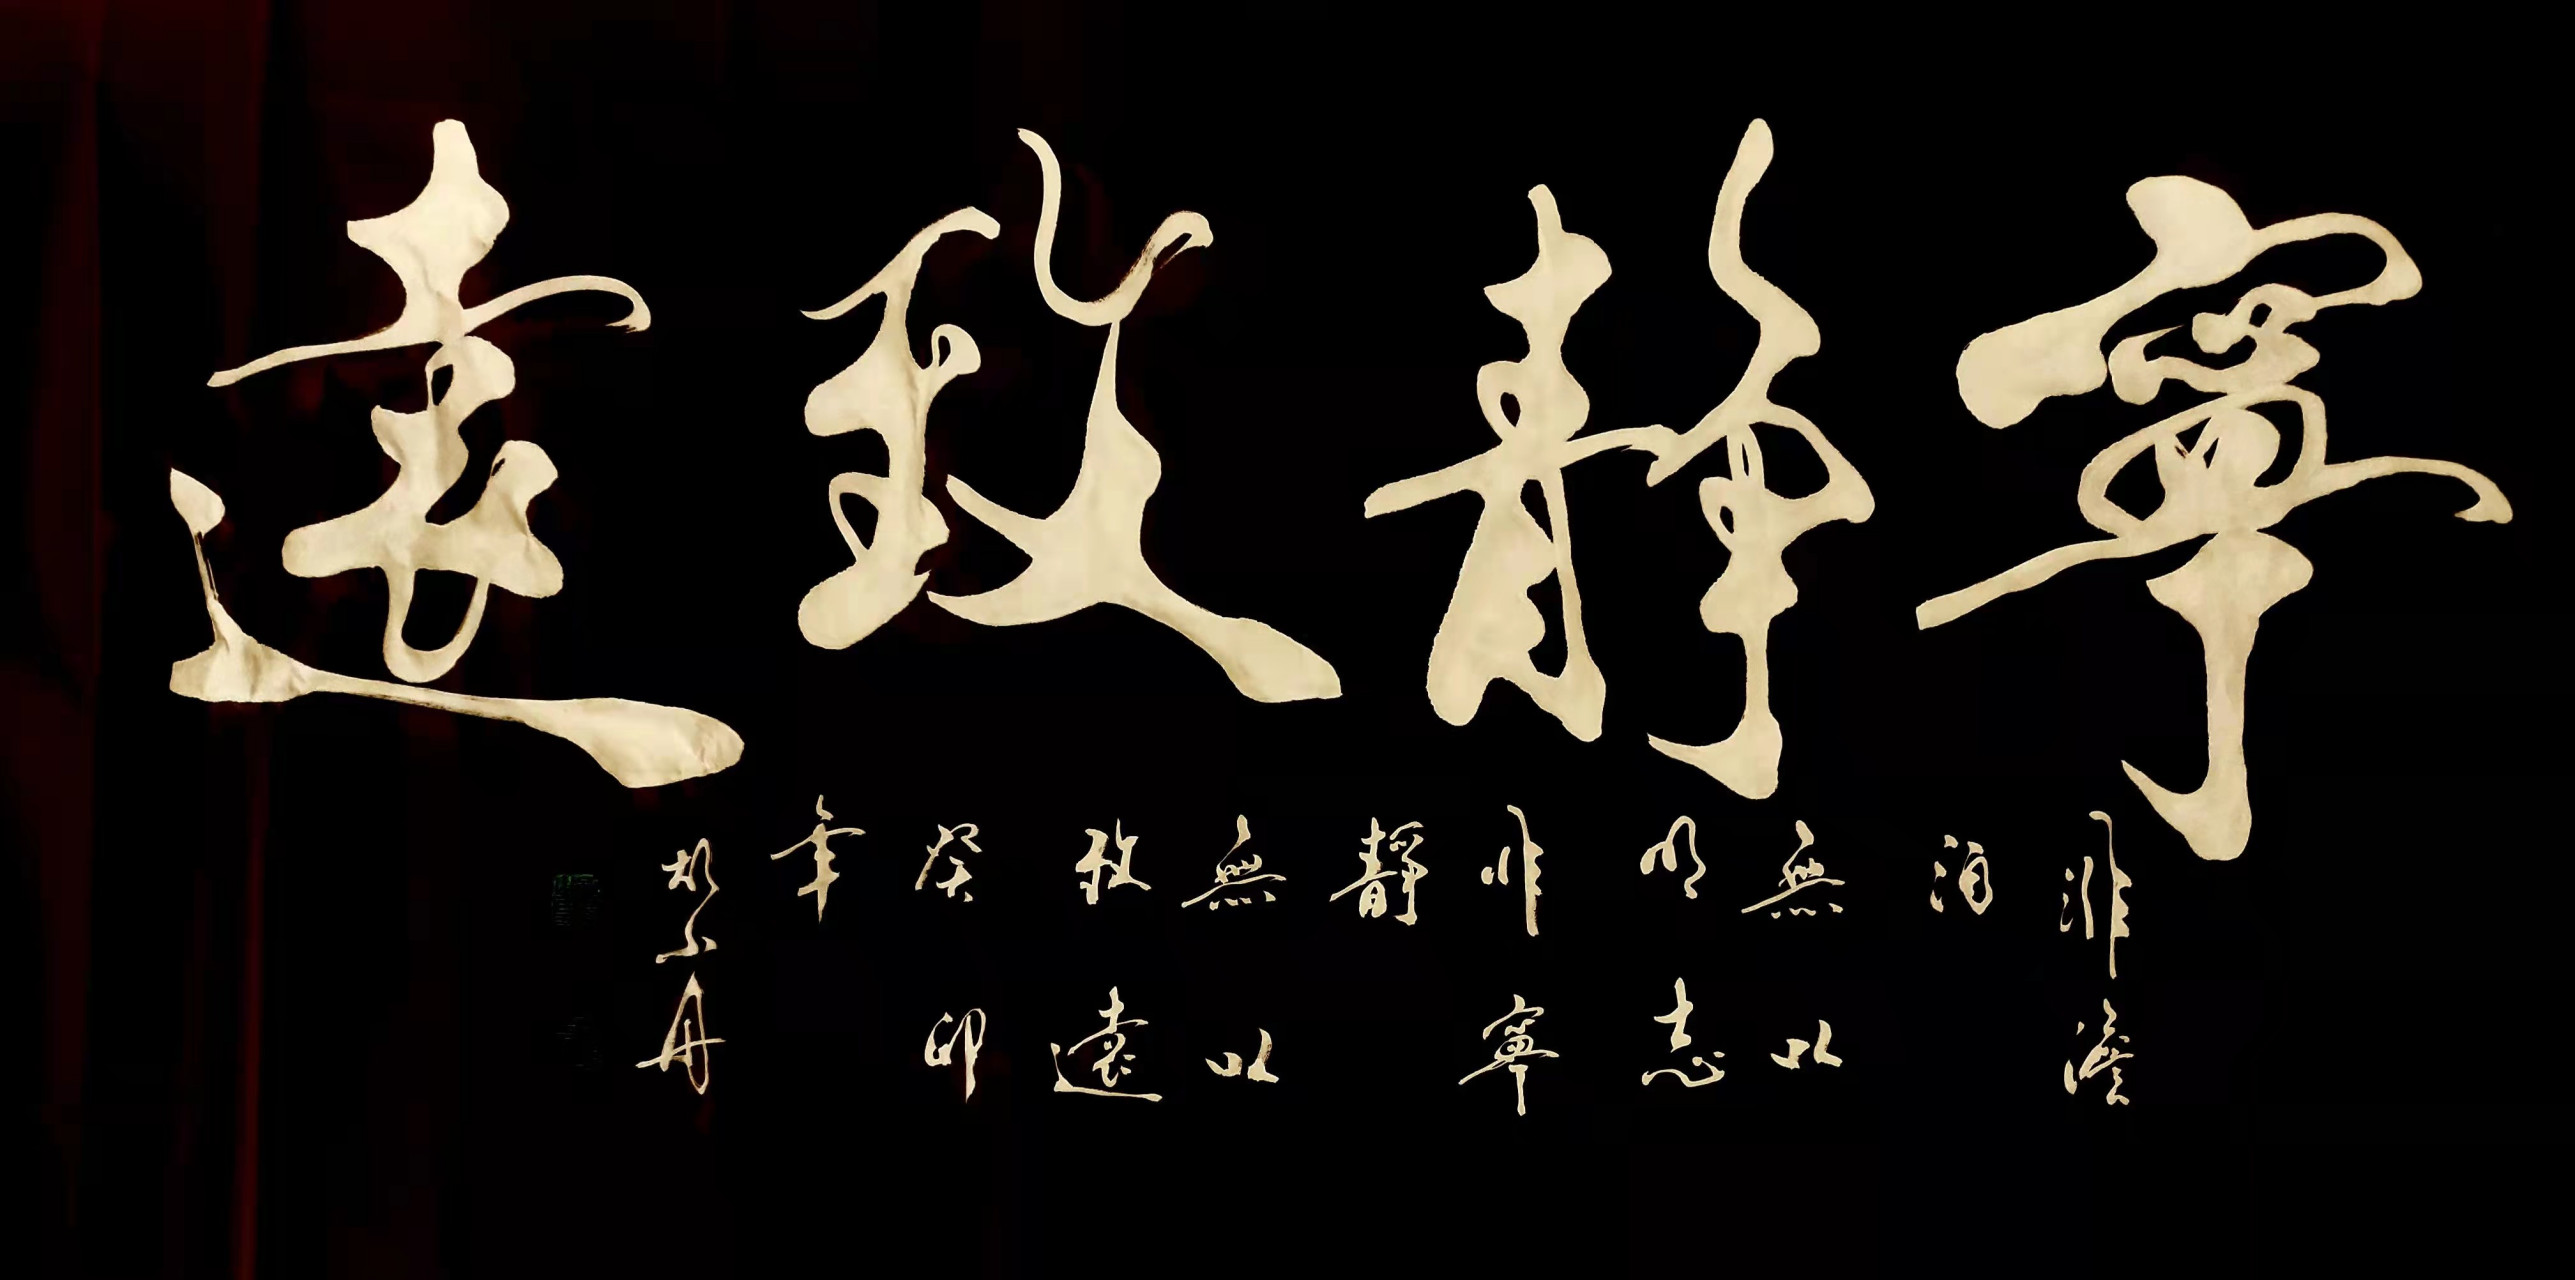 寧靜致遠
非澹
泊
無以
明志
非寧
靜
無以
致遠
癸卯
年
胡